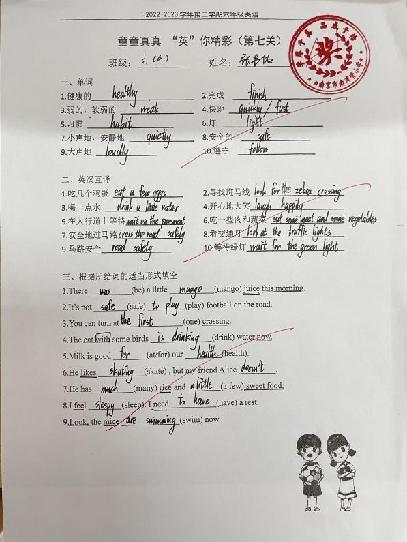 2022-2023学年第二学期六年级英语
童童真真 “英”你精彩（第七关）
班级： 姓名：
一、单词
1.健康的 healthy 2.完成 finish
3.弱的；软弱的 weak 4.快地 quickly / fast
5.习惯 habit 6.灯 light
7.小声地，安静地 quietly 8.安全的 safe
9.大声地 loudly 10.遵守 follow
二、英汉互译
1.吃几个鸡蛋 eat a few eggs 2.寻找斑马线 look for the zebra crossing
3.喝一点水 drink a little water 4.开心地大笑 laugh happily
5.在人行道上等待 wait on the pavement 6.吃一些肉和蔬菜 eat some meat and some vegetables
7.安全地过马路 cross the road safely 8.看交通灯 look at the traffic lights
9.马路安全 road safety 10.等待绿灯 wait for the green light
三、根据所给词的适当形式填空
1.There was (be) a little mango (mango) juice this morning.
2.It's not safe (safe) to play (play) football on the road.
3.You can turn at the first (one) crossing.
4.The cat with some birds is drinking (drink) water now.
5.Milk is good for (at/for) our health (health).
6.He likes skating (skate), but my friend A doesn't
7.He has much (many) rice and a little (a few) sweet food.
8.I feel sleepy (sleep). I need to have (have) a rest
9.Look, the mice are swimming (swim) now